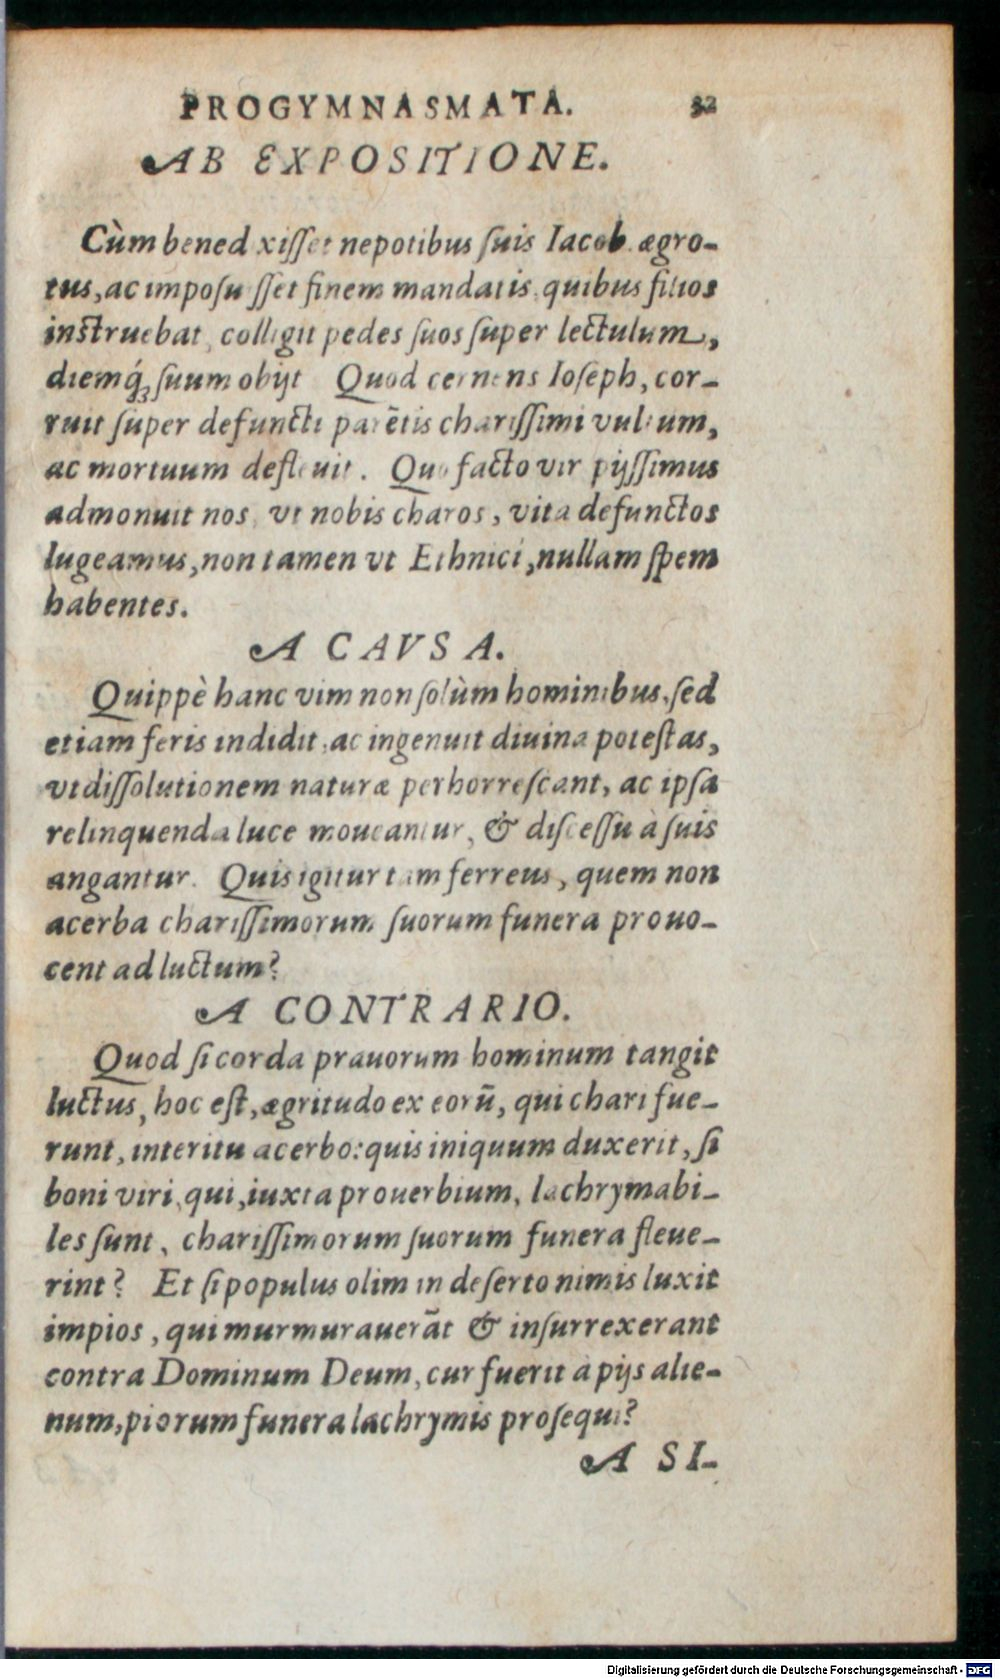 PROGYMNASMATA. 32
AB EXPOSITIONE.
Cùm bened xisset nepotibus suis Iacob ægro-
tus, ac imposu sset finem mandatis, quibus filios
instruebat, colligit pedes suos super lectulum,
diemq́ꝫ suum obijt Quod cernens Ioseph, cor-
ruit super defuncti parẽtis charissimi vultum,
ac mortuum defleuit. Quo facto vir pijssimus
admonuit nos, vt nobis charos, vita defunctos
lugeamus, non tamen vt Ethnici, nullam spem
habentes.
A CAVSA.
Quippè hanc vim non solùm hominibus, sed
etiam feris indidit, ac ingenuit diuina potestas,
vt dissolutionem naturæ perhorrescant, ac ipsa
relinquenda luce moueantur, & discessu à suis
angantur. Quis igitur tam ferreus, quem non
acerba charissimorum suorum funera prouo-
cent ad luctum?
A CONTRARIO.
Quod si corda prauorum hominum tangit
luctus, hoc est, ægritudo ex eorũ, qui chari fue-
runt, interitu acerbo: quis iniquum duxerit, si
boni viri, qui, iuxta prouerbium, lachrymabi-
les sunt, charissimorum suorum funera fleue-
rint? Et si populus olim in deserto nimis luxit
impios, qui murmurauerãt & insurrexerant
contra Dominum Deum, cur fuerit à pijs alie-
num, piorum funera lachrymis prosequi?
A SI-
Digitalisierung gefördert durch die Deutsche Forschungsgemeinschaft - DFG